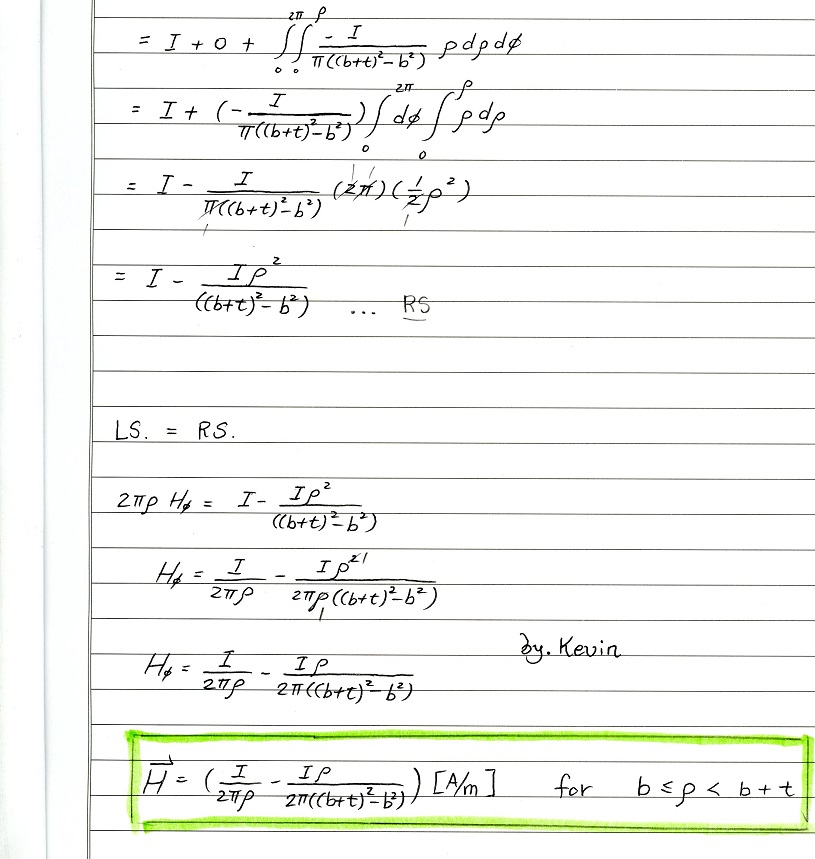 = I + 0 + ∫₀^2π ∫₀^ρ -I / π((b+t)²-b²) ρ dρ dϕ
= I + (- I / π((b+t)²-b²)) ∫₀^2π dϕ ∫₀^ρ ρ dρ
= I - I / π((b+t)²-b²) (2π)(1/2 ρ²)
= I - Iρ² / ((b+t)²-b²) ... RS
LS. = RS.
2πρ Hϕ = I - Iρ² / ((b+t)²-b²)
Hϕ = I / 2πρ - Iρ² / 2πρ((b+t)²-b²)
by. Kevin
Hϕ = I / 2πρ - Iρ / 2π((b+t)²-b²)
H⃗ = (I / 2πρ - Iρ / 2π((b+t)²-b²)) [A/m] for b ≤ ρ < b + t